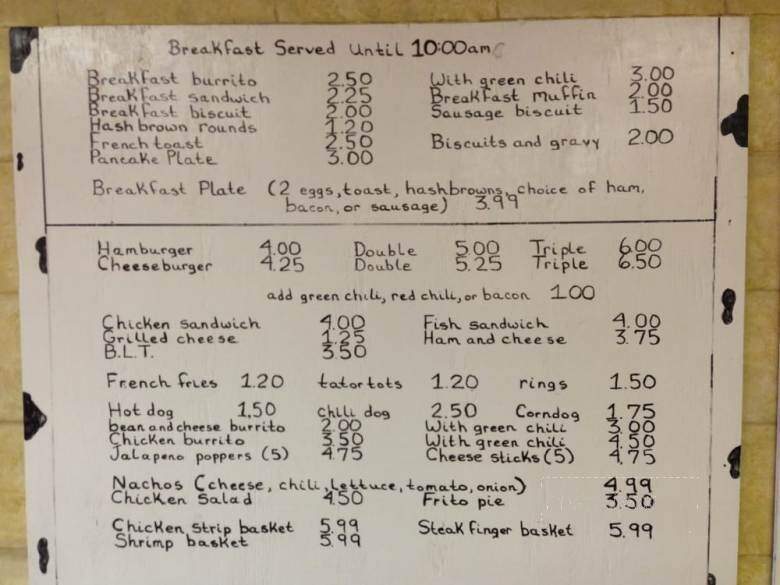 Breakfast Served Until 10:00am
Breakfast burrito 2.50 With green chili 3.00
Breakfast sandwich 2.25 Breakfast muffin 2.00
Breakfast biscuit 2.00 Sausage biscuit 1.50
Hash brown rounds 1.20
French toast 2.50 Biscuits and gravy 2.00
Pancake Plate 3.00
Breakfast Plate (2 eggs, toast, hashbrowns, choice of ham,
bacon, or sausage) 3.99
Hamburger 4.00 Double 5.00 Triple 6.00
Cheeseburger 4.25 Double 5.25 Triple 6.50
add green chili, red chili, or bacon 1.00
Chicken sandwich 4.00 Fish sandwich 4.00
Grilled cheese 1.25 Ham and cheese 3.75
B.L.T. 3.50
French fries 1.20 tatortots 1.20 rings 1.50
Hot dog 1.50 chili dog 2.50 Corndog 1.75
bean and cheese burrito 2.00 With green chili 3.00
Chicken burrito 3.50 With green chili 4.50
Jalapeno poppers (5) 4.75 Cheese sticks (5) 4.75
Nachos (cheese, chili, lettuce, tomato, onion) 4.99
Chicken Salad 4.50 Frito pie 3.50
Chicken strip basket 5.99 Steak finger basket 5.99
Shrimp basket 5.99